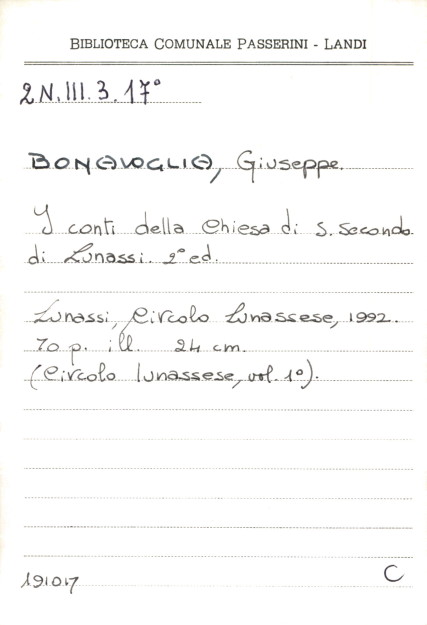 BIBLIOTECA COMUNALE PASSERINI - LANDI
2N.III.3.17°
BONAVOGLIA, Giuseppe.
I conti della Chiesa di S. Secondo
di Lunassi. 2ª ed.
Lunassi, Circolo Lunassese, 1992.
70 p. ill. 24 cm.
(Circolo lunassese, vol. 1°).
191017
C